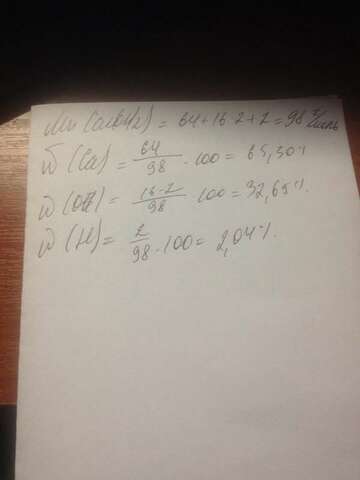 Mr(Cu(OH)2) = 64+16·2+2 = 98 г/моль
W (Cu) = 64/98 · 100 = 65,30%
W (O) = 16·2/98 · 100 = 32,65%.
W (H) = 2/98 · 100 = 2,04%.